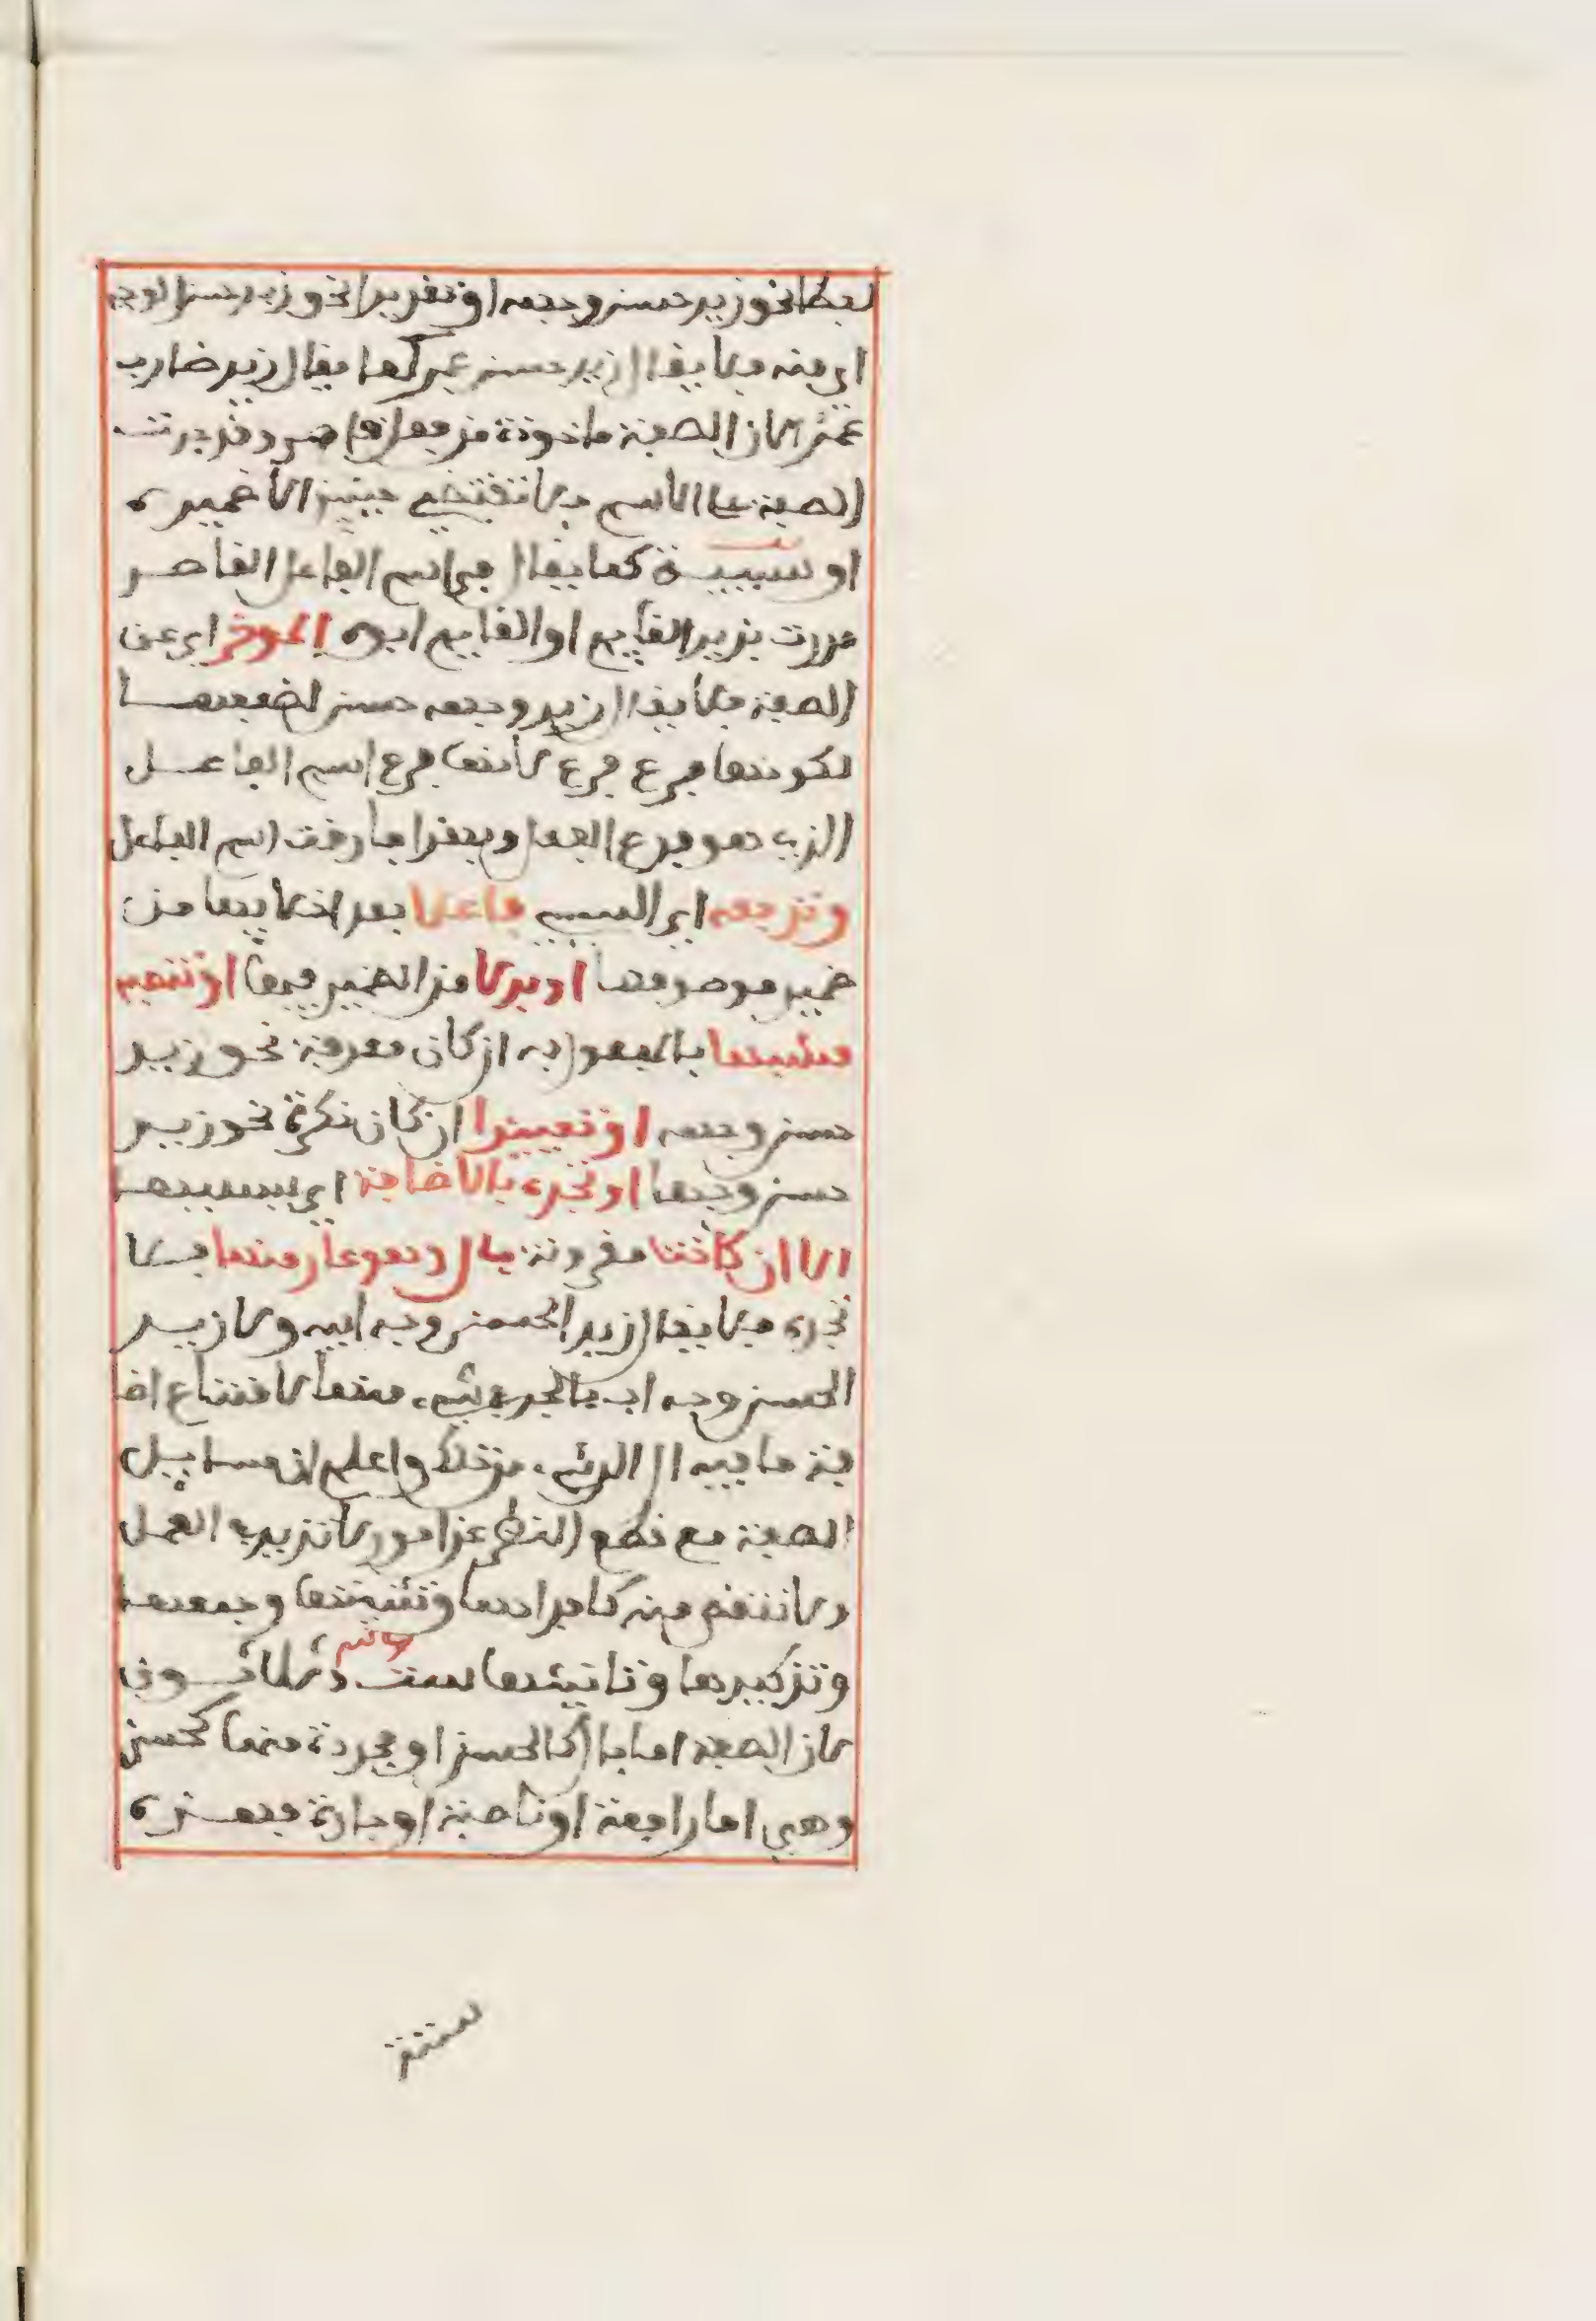 لفظا نحو زيد حسن وجهه او تقديرا نحو زيد حسن الوجه
اي منه فلا يقال زيد حسن عمر كما يقال زيد ضارب
عمر لان الصفة ماخوذة من فعل قاصر وقد جرت
الصفة على الاسم فلا تقتضي حينيذ الا ضميره
او سببيه كما يقال في اسم الفاعل القاصر
مررت بزيد القايم او القايم ابوه الموخر اي عن
الصفة فلا يقال زيد وجهه حسن لضعفها
لكونها فرع فرع لانها فرع اسم الفاعل
الذي هو فرع الفعل وبهذا فارقت اسم الفاعل
وترفعه اي السببي فاعلا بعد اخلايها من
ضمير موصوفها او بدلا من الضمير فيها او تنصبه
مشبها بالمفعول به ان كان معرفة نحو زيد
حسن وجهه او تمييزا ان كان نكرة نحو زيد
حسن وجها او تجره بالاضافة اي بسببها
الا ان كانت مقرونة بال وهو عار منها فلا
تجره فلا يقال زيد الحسن وجه ابيه ولا زيد
الحسن وجه اب بالجر في شيء منهما لامتناع اضا
فة ما فيه ال الى شيء من ذلك واعلم ان مسايل
الصفة مع قطع النظر عن امور لا تزيد في العمل
ولا تنقص منه كافرادها وتثنيتها وجمعها
وتذكيرها وتانيثها ست وثلاثون
لان الصفة اما بال كالحسن او مجردة منها كحسن
وهي اما رافعة او ناصبة او جارة فهذه
ستة